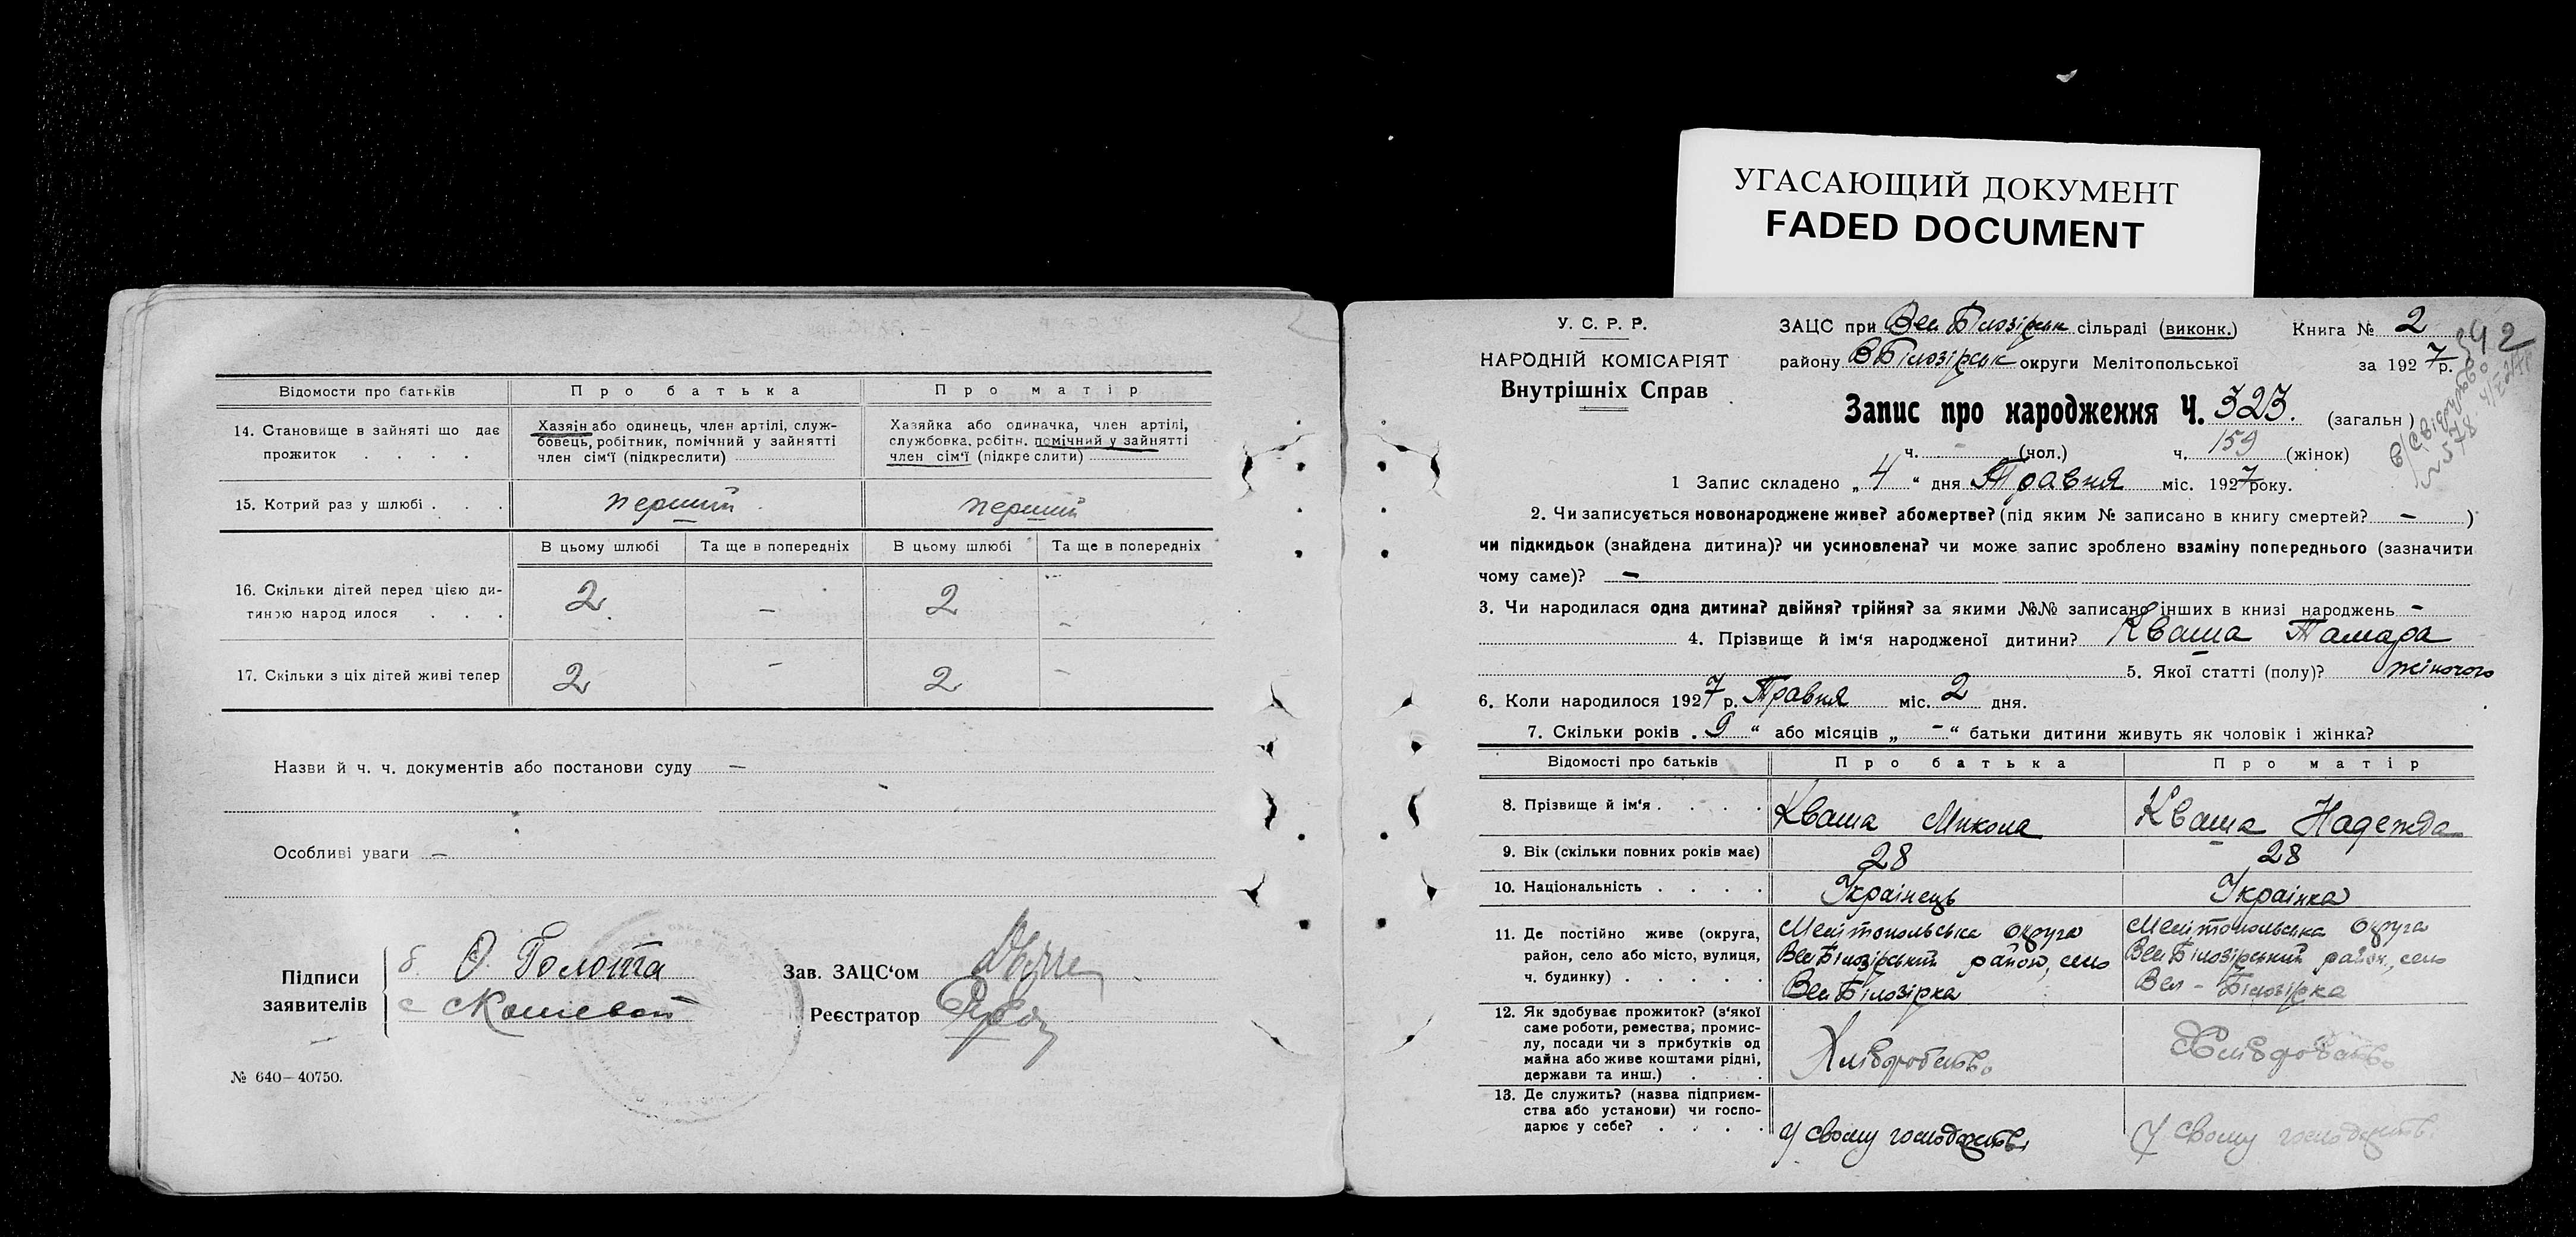 УГАСАЮЩИЙ ДОКУМЕНТ
FADED DOCUMENT
Відомости про батьків
Про батька
Про матір
14. Становище в зайняті що дає
прожиток . . . .
Хазяін або одинець, член артілі, служ-
бовець, робітник, помічний у зайнятті
член сім'ї (підкреслити)
Хазяйка або одиначка, член артілі,
службовка, робітн. помічний у зайнятті
член сім'ї (підкреслити)
15. Котрий раз у шлюбі . . .
перший
перший
В цьому шлюбі
Та ще в попередніх
В цьому шлюбі
Та ще в попередніх
16. Скільки дітей перед цією ди-
тиною народ илося . . .
2
–
2
–
17. Скільки з ціх дітей живі тепер
2
–
2
–
Назви й ч. ч. документів або постанови суду –
Особливі уваги –
Підписи
заявителів
б. О. Голота
с Кошевой
Зав. ЗАЦС'ом
Реєстратор
№ 640—40750.
У. С. Р. Р.
НАРОДНІЙ КОМІСАРІЯТ
Внутрішніх Справ
ЗАЦС при Вел Білозірськ сільраді (виконк.) Книга № 2
району В Білозірськ округи Мелітопольської за 1927 р.
Запис про народження Ч. 323. (загальн)
ч. – (чол.) ч. 159 (жінок)
№ 578
1 Запис складено „4“ дня Травня міс. 1927 року.
2. Чи записується новонароджене живе? абомертве? (під яким № записано в книгу смертей? – )
чи підкидьок (знайдена дитина)? чи усиновлена? чи може запис зроблено взаміну попереднього (зазначити
чому саме)? –
3. Чи народилася одна дитина? двійня? трійня? за якими №№ записано інших в книзі народжень –
4. Прізвище й ім'я народженої дитини? Кваша Тамара
5. Якої статті (полу)? жіночого
6. Коли народилося 1927 р. Травня міс. 2 дня.
7. Скільки років „ 9 “ або місяців „ – “ батьки дитини живуть як чоловік і жінка?
Відомості про батьків
Про батька
Про матір
8. Прізвище й ім'я . . . .
Кваша Микола
Кваша Надежда
9. Вік (скільки повних років має)
28
28
10. Національність . . . .
Українець
Українка
11. Де постійно живе (округа,
район, село або місто, вулиця,
ч. будинку) . . . . .
Мелітопольська округа
Вел Білозірський район, село
Вел Білозірка
Мелітопольська округа
Вел Білозірський район, село
Вел – Білозірка
12. Як здобуває прожиток? (з'якої
саме роботи, ремества, промис-
лу, посади чи з прибутків од
майна або живе коштами рідні,
держави та инш.) . . .
Хліборобство
Хліборобство
13. Де служить? (назва підприєм-
ства або установи) чи госпо-
дарює у себе? . . . .
У свому господарстві
У свому господарстві